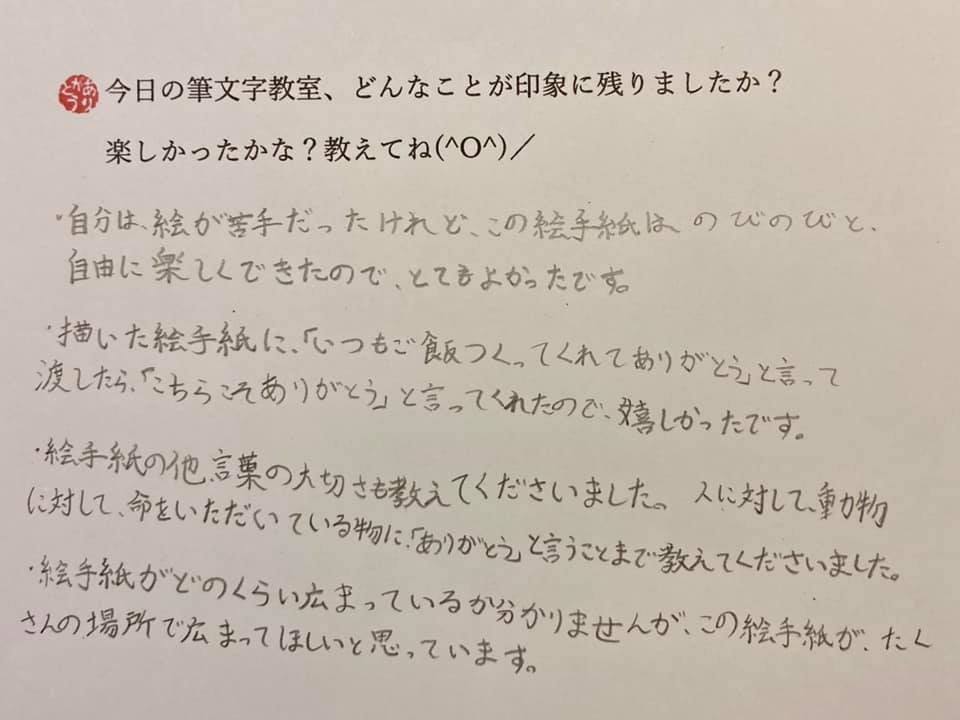 ありがとう
今日の筆文字教室、どんなことが印象に残りましたか？
楽しかったかな？教えてね(^O^)／
・自分は、絵が苦手だったけれど、この絵手紙は のびのびと、
自由に楽しくできたので、とてもよかったです。
・描いた絵手紙に、「いつもご飯つくってくれてありがとう」と言って
渡したら、「こちらこそありがとう」と言ってくれたので、嬉しかったです。
・絵手紙の他、言葉の大切さも教えてくださいました。 人に対して、動物
に対して、命をいただいている物に、「ありがとう」と言うことまで教えてくださいました。
・絵手紙がどのくらい広まっているか分かりませんが、この絵手紙が、たく
さんの場所で広まってほしいと思っています。